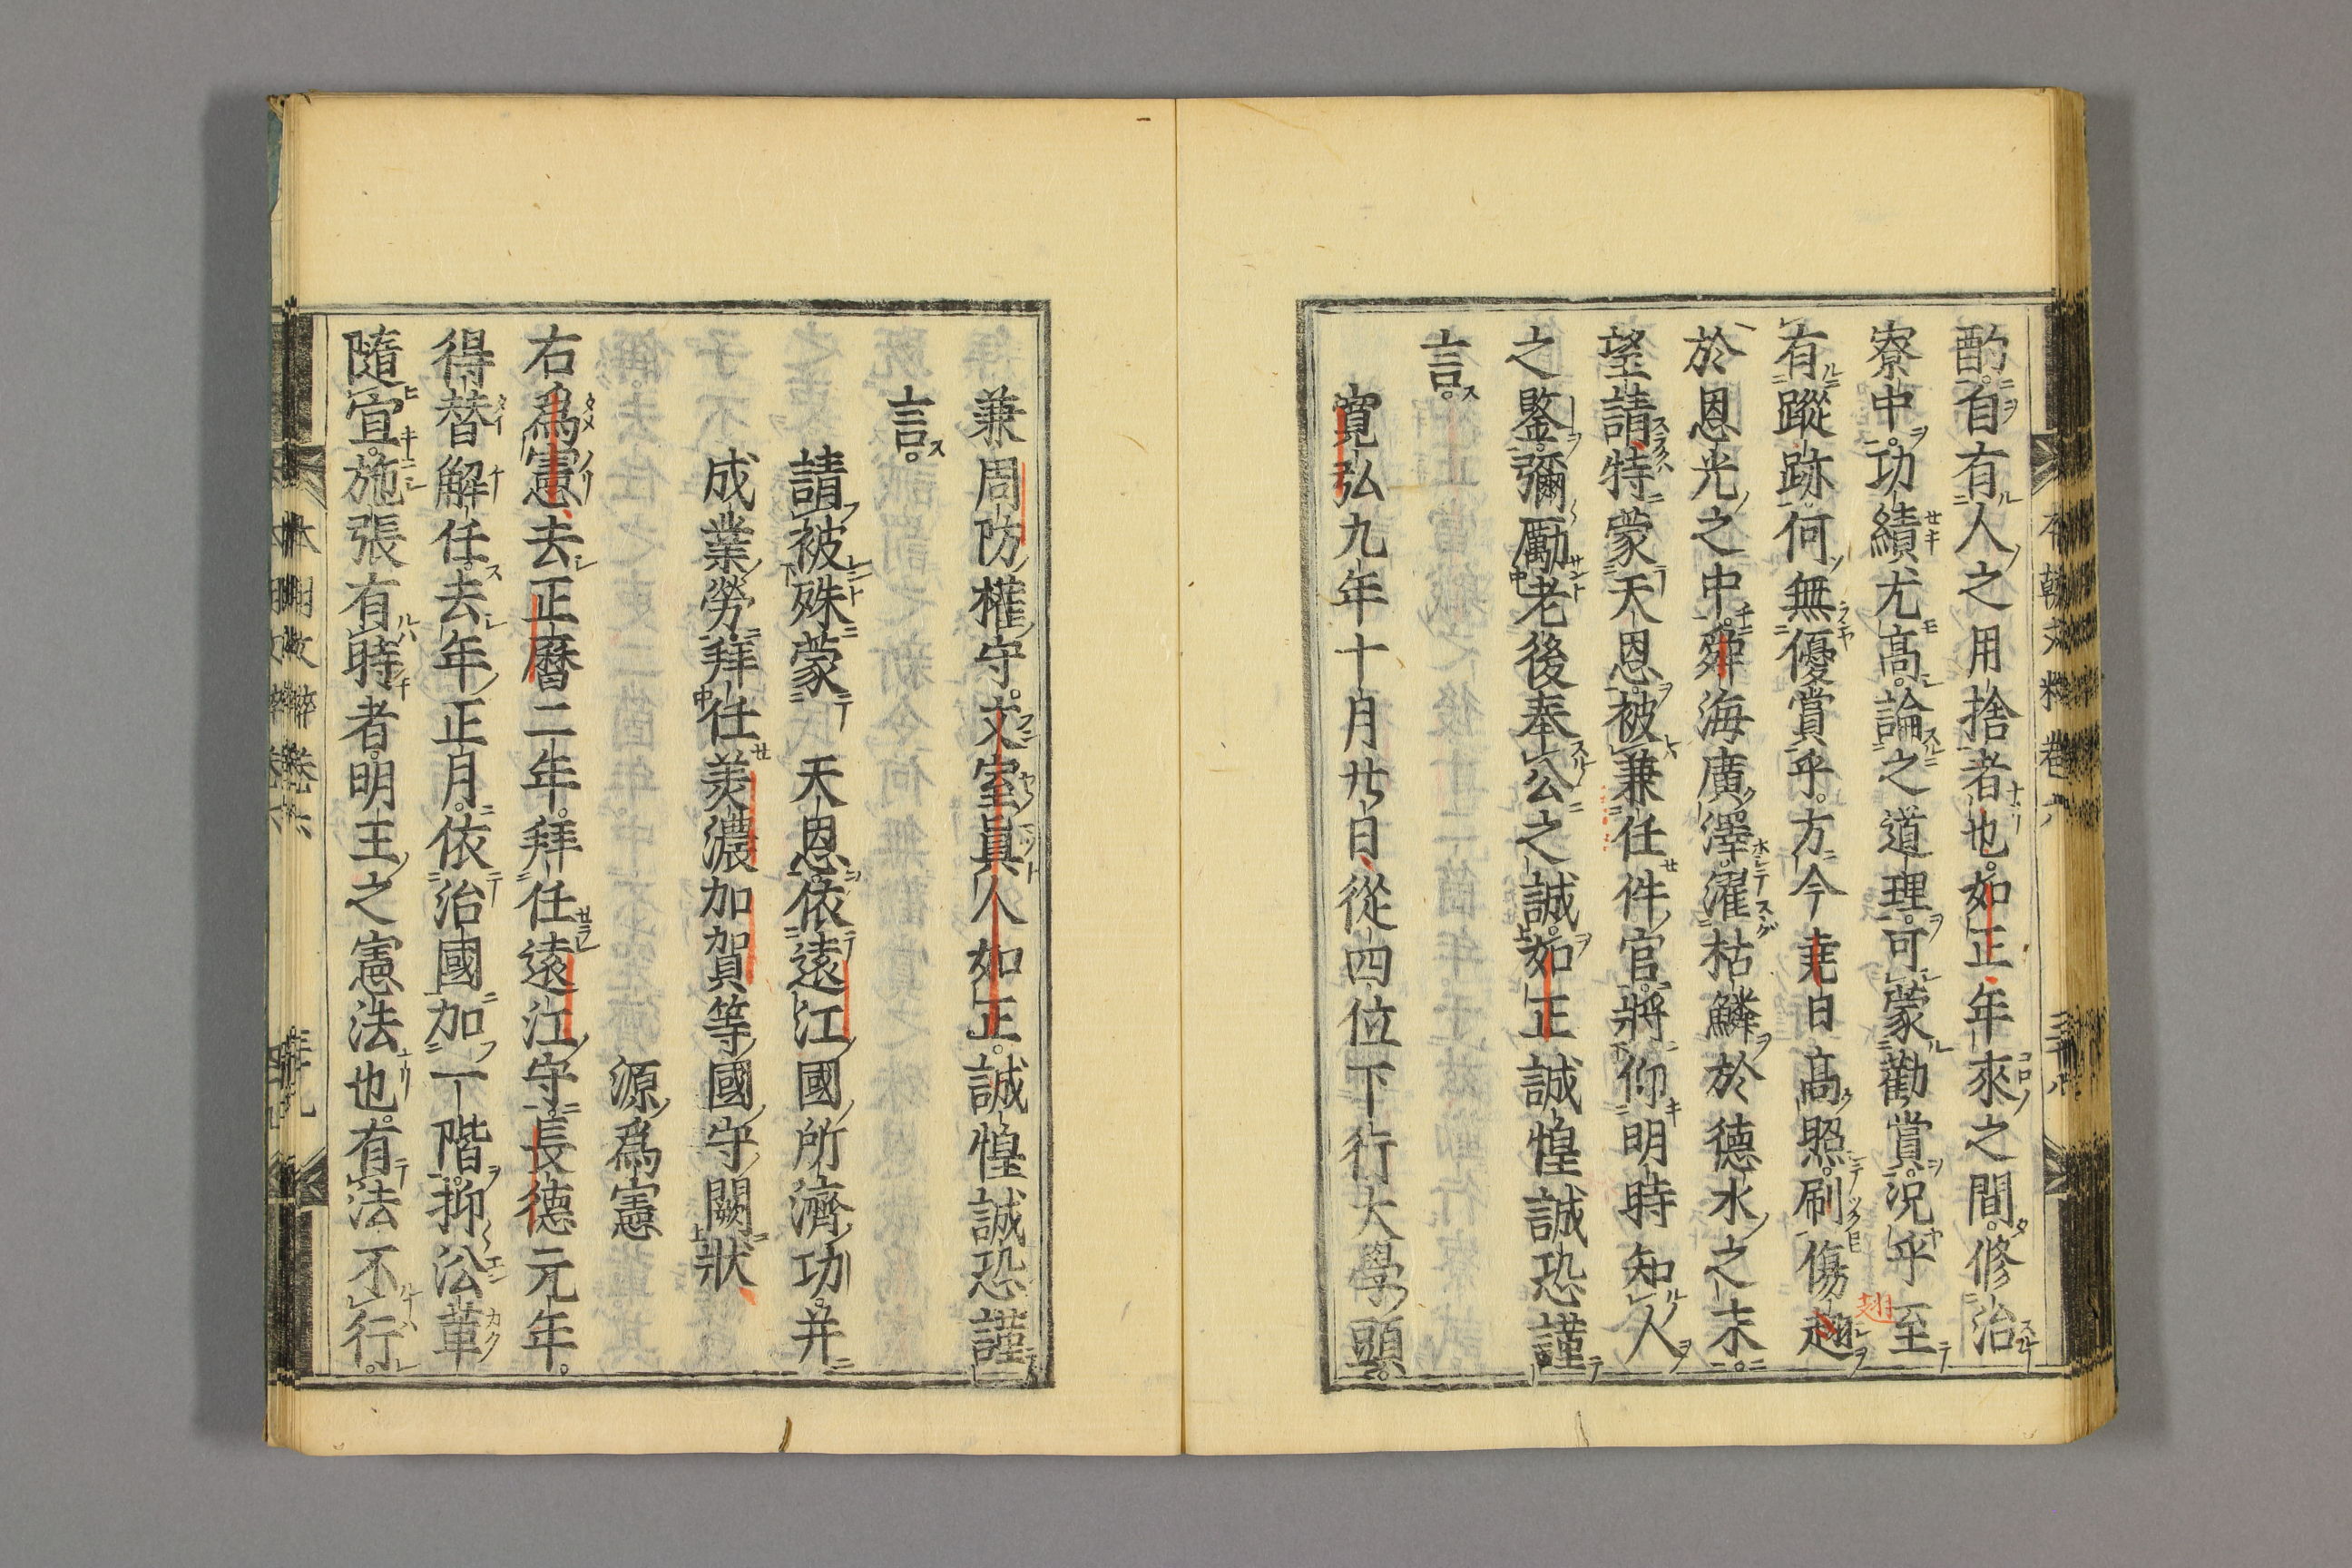 酌。自有人之用捨者也。如正年來之間。修治
寮中。功績尤高。論之道理。可蒙勸賞。況乎至
有蹤跡。何無優賞乎。方今堯日高照。刷傷趐
於恩光之中。舜海廣澤。濯枯鱗於德水之末。
望請。特蒙天恩。被兼任件官。將仰明時知人
之鑒。彌勵老後奉公之誠。如正誠惶誠恐謹
言。
寬弘九年十月廿日。從四位下行大學頭。
兼周防權守。文室眞人如正。誠惶誠恐謹
言。
請被殊蒙 天恩。依遠江國所濟功。并
成業勞。拜任美濃加賀等國守闕狀
源爲憲
右爲憲。去正曆二年。拜任遠江守。長德元年。
得替解任。去年正月。依治國加一階。抑沿革
隨宜。施張有時者。明王之憲法也。有法不行。
本朝文粹卷六
翅